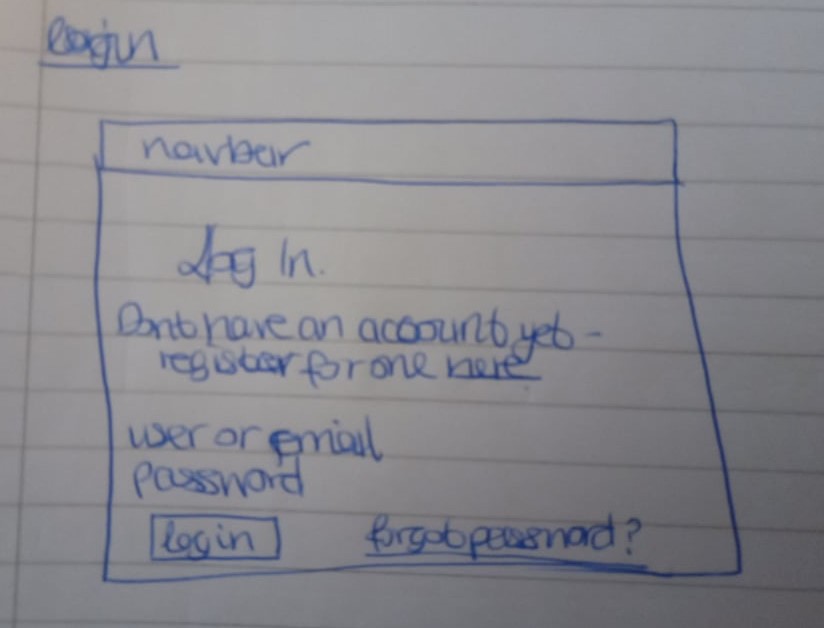 login
navbar
Log In.
Dont have an account yet -
register for one here
user or email
password
login forgot password?